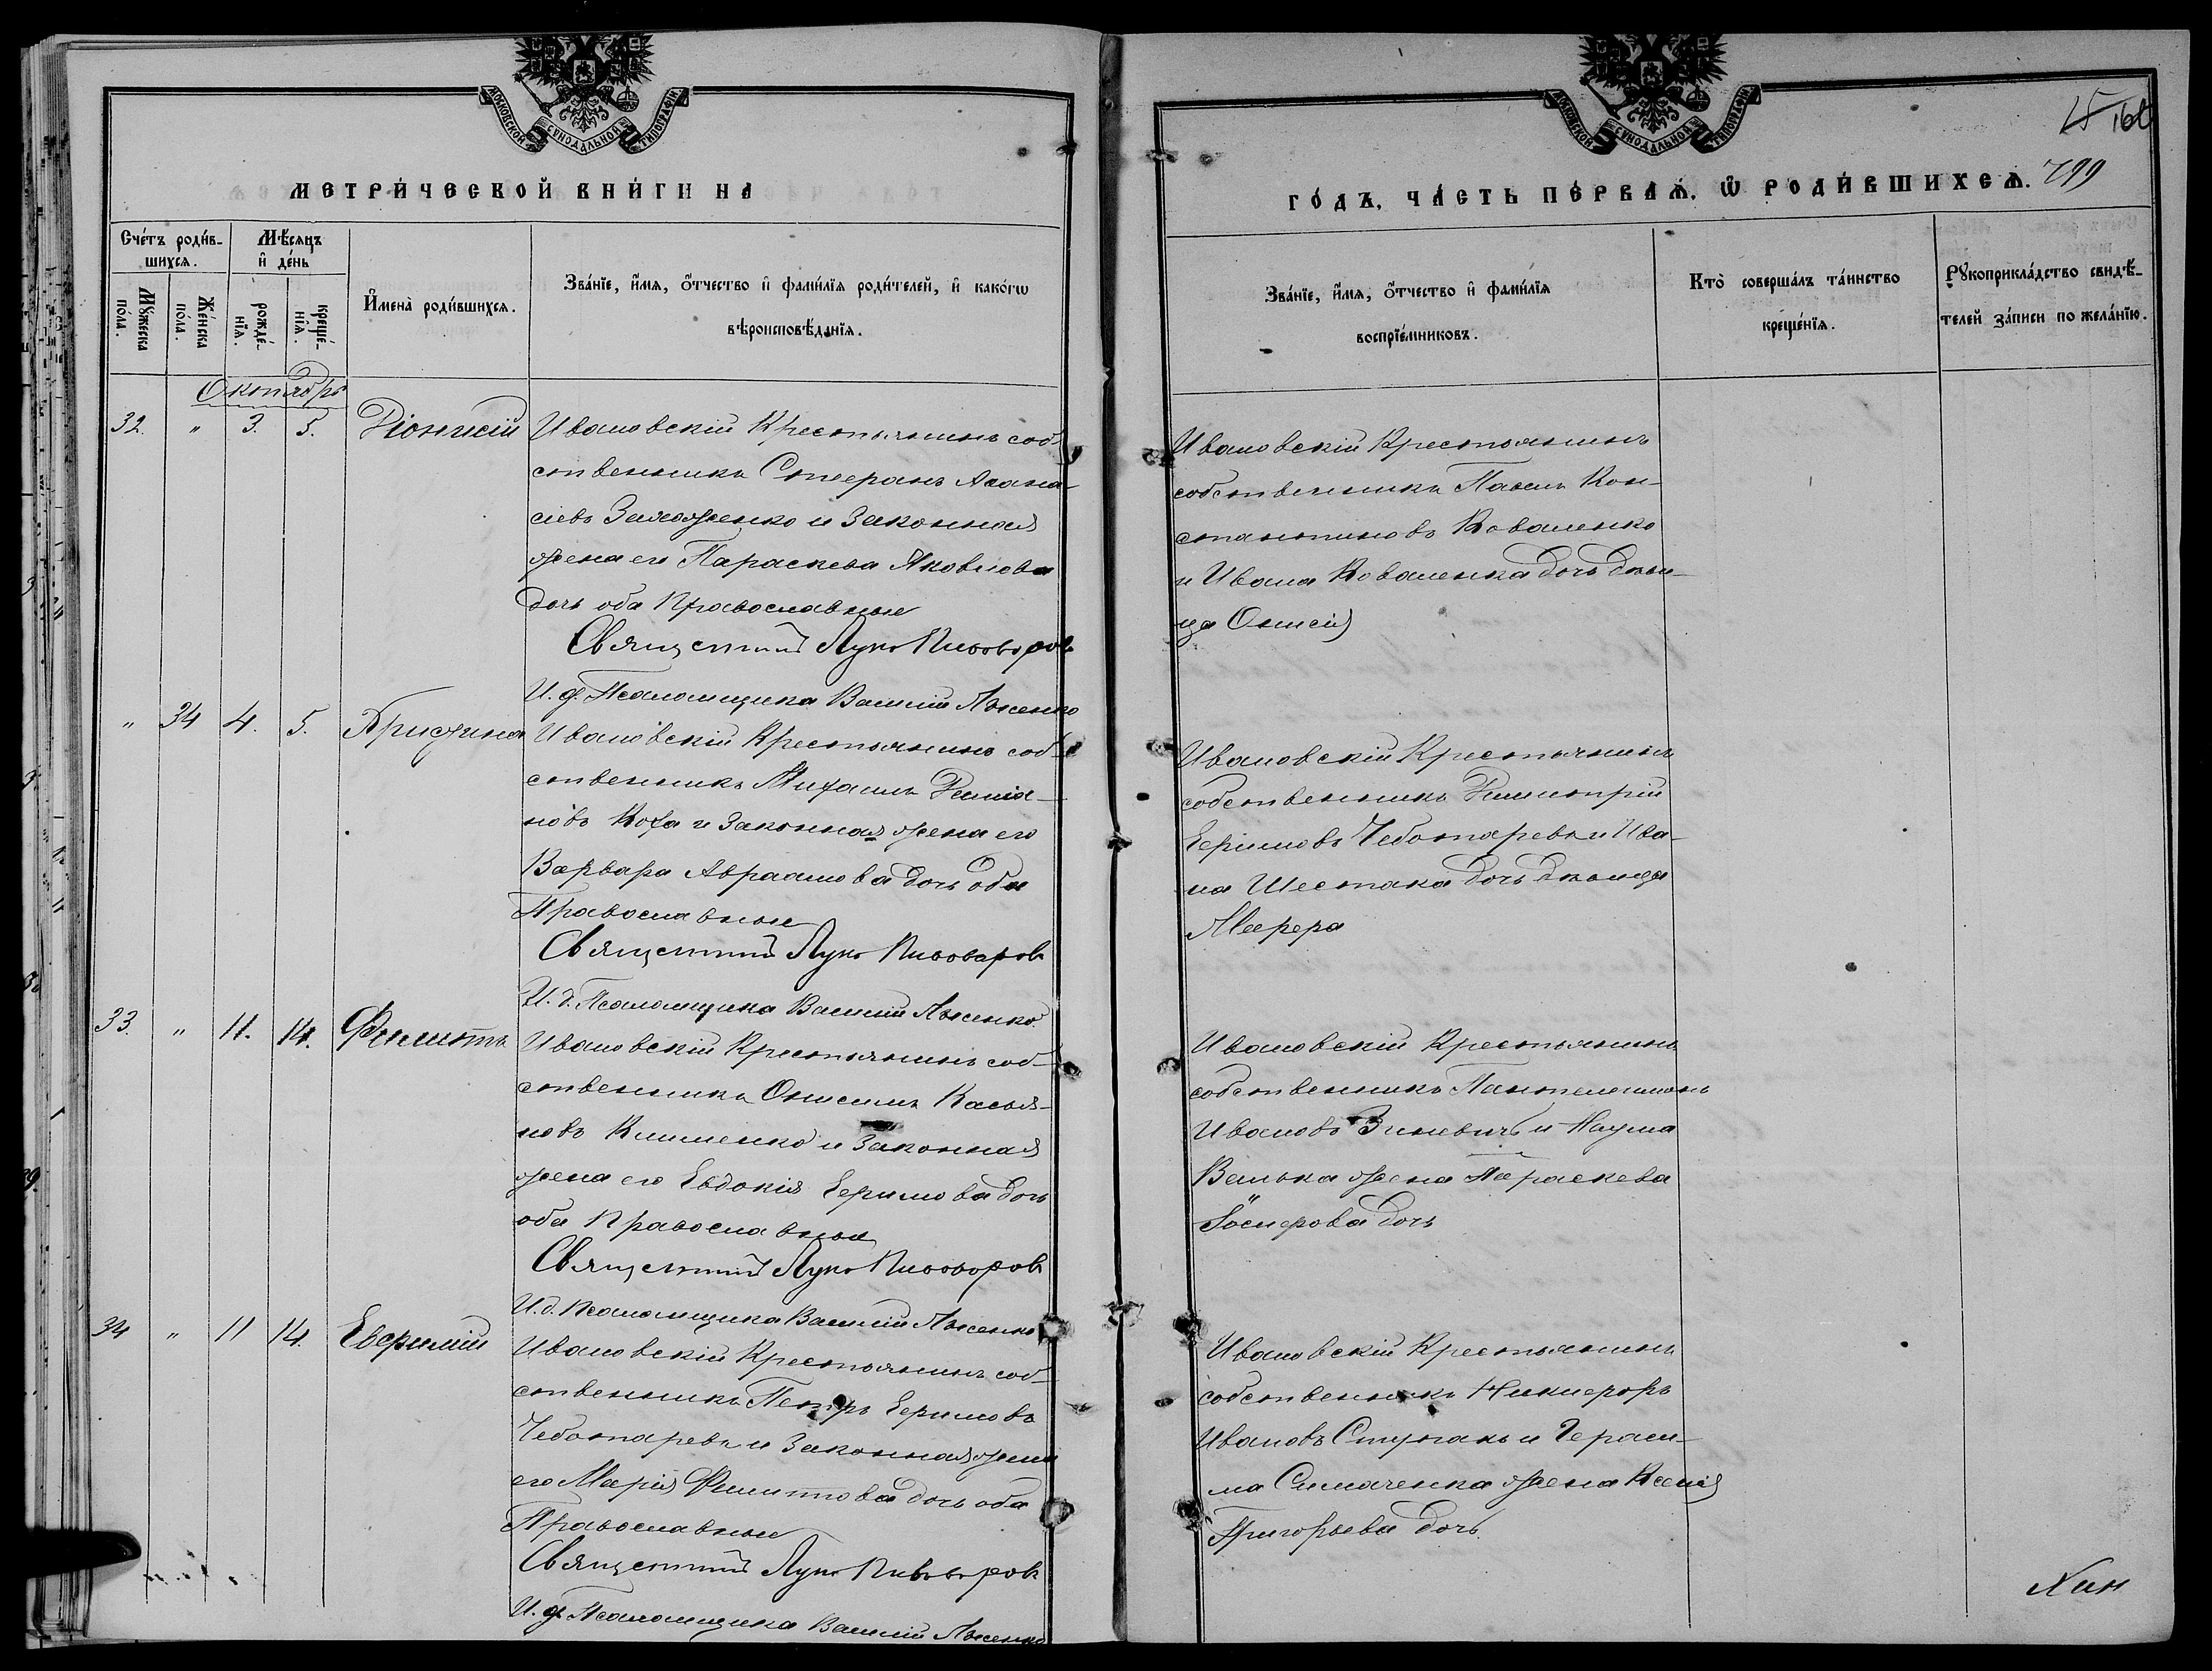 МОСКОВСКОЙ СУНОДАЛЬНОЙ ТИПОГРАФІИ
МЕТРИ́ЧЕСКОЙ КНИ́ГИ НА
Сче́тъ роди́в-
шихсѧ.
Мѣ́сѧцъ
и҆ де́нь
Мꙋ́жеска
по́ла.
Же́нска
по́ла.
рожде́-
нїѧ.
креще́-
нїѧ.
И҆мена̀ роди́вшихсѧ.
Зва́нїе, и҆́мѧ, ѻ҆́тчество и҆ фамѝлїѧ роди́телей, и҆ како́гѡ
вѣроисповѣ́данїѧ.
Октябрь
32. " 3. 5. Діонисій
Ивановскій Крестьянинъ соб-
ственникъ Стефанъ Афана-
сіевъ Заложенко и Законная
жена его Параскева Яковлева
дочь оба Православные
Священникъ Лука Пивоваровъ
И. д. Псаломщика Василій Лысенко
" 34 4. 5. Христина
Ивановскій Крестьянинъ соб-
ственникъ Михаилъ Деміа-
новъ Коха и Законная жена его
Варвара Авраамова дочь оба
Православные
Священникъ Лука Пивоваровъ
И. д. Псаломщика Василій Лысенко
33. " 11. 14. Филиппъ
Ивановскій Крестьянинъ соб-
ственникъ Онисимъ Касья-
новъ Клименко и Законная
жена его Евдокія Ефимова дочь
оба Православные
Священникъ Лука Пивоваровъ
И. д. Псаломщика Василій Лысенко
34 " 11 14. Евфимій
Ивановскій Крестьянинъ соб-
ственникъ Петръ Ефимовъ
Чеботаревъ и Законная жена
его Марія Филиппова дочь оба
Православные
Священникъ Лука Пивоваровъ
И. д. Псаломщика Василій Лысенко
МОСКОВСКОЙ СУНОДАЛЬНОЙ ТИПОГРАФІИ
ГО́ДЪ, ЧА́СТЬ ПЕ́РВАѦ, Ѡ҆ РОДИ́ВШИХСѦ. 799
Зва́нїе, и҆́мѧ, ѻ҆́тчество и҆ фамѝлїѧ
воспрїе́мниковъ.
Кто̀ соверша́лъ та́инство
креще́нїѧ.
Рꙋкоприкла́дство свидѣ́-
телей за́писи по жела́нїю.
Ивановскій Крестьянинъ
собственникъ Павелъ Кон-
стантиновъ Коваленко
и Ивана Коваленка дочь дѣви-
ца Онисія
Ивановскій Крестьянинъ
собственникъ Димитрій
Ефимовъ Чеботаревъ и Ива-
на Шестака дочь дѣвица
Гликерія Ивановскій Крестьянинъ
собственникъ Пантелеимонъ
Ивановъ Зиневичъ и Наума
Велька жена Параскева
Іосифова дочь
Ивановскій Крестьянинъ
собственникъ Никифоръ
Ивановъ Ступакъ и Гераси-
ма Симаченка жена Ксенія
Григорьева дочь.